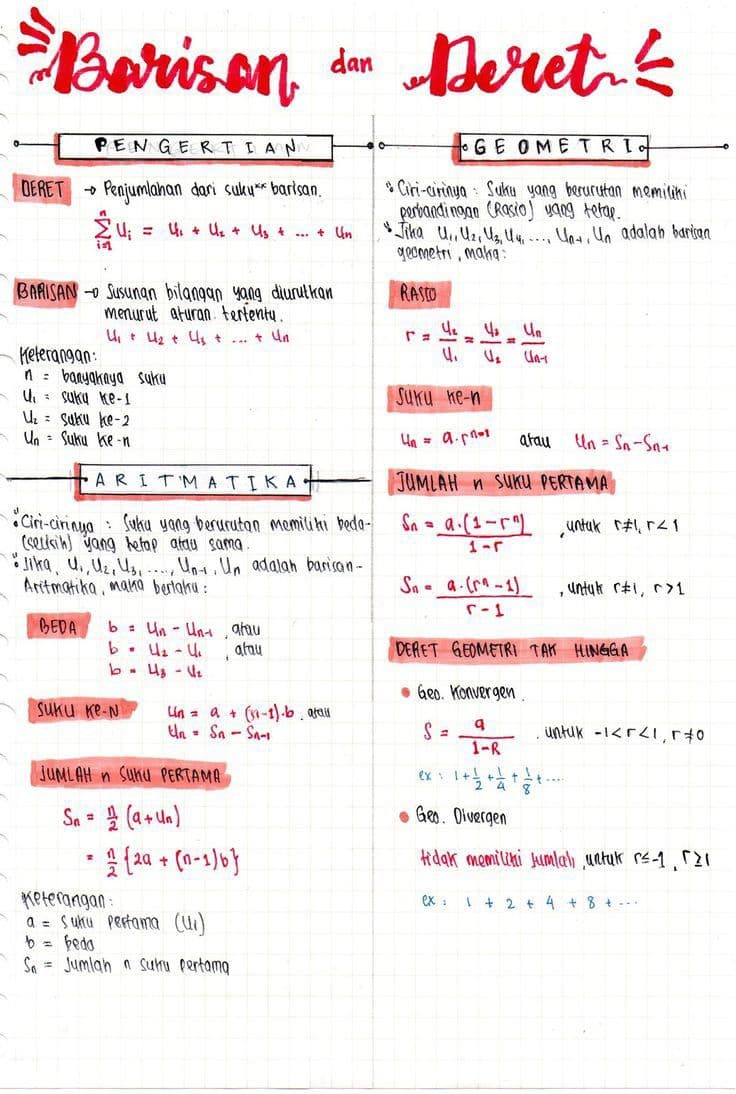 Barisan dan Deret
PENGERTIAN
DERET → Penjumlahan dari suku" barisan.
n
∑ Ui = U1 + U2 + U3 + ... + Un
i=1
BARISAN → Susunan bilangan yang diurutkan
menurut aturan tertentu.
U1 + U2 + U3 + ... + Un
Keterangan:
n = banyaknya suku
U1 = suku ke-1
U2 = suku ke-2
Un = suku ke-n
ARITMATIKA
Ciri-cirinya : Suku yang berurutan memiliki beda-
(selisih) yang tetap atau sama.
Jika, U1, U2, U3, ...., Un-1, Un adalah barisan-
Aritmatika, maka berlaku :
BEDA b = Un - Un-1, atau
b = U2 - U1, atau
b = U3 - U2
SUKU KE-N Un = a + (n-1).b, atau
Un = Sn - Sn-1
JUMLAH n SUKU PERTAMA
Sn = n/2 (a+Un)
= n/2 {2a + (n-1)b}
Keterangan:
a = Suku Pertama (U1)
b = beda
Sn = Jumlah n suku pertama
GEOMETRI
Ciri-cirinya : Suku yang berurutan memiliki
perbandingan (Rasio) yang tetap.
Jika U1, U2, U3, U4, ..., Un-1, Un adalah barisan
geometri, maka:
RASIO
r = U2/U1 = U3/U2 = Un/Un-1
SUKU KE-n
Un = a.r^n-1 atau Un = Sn - Sn-1
JUMLAH n SUKU PERTAMA
Sn = a.(1-r^n)/1-r , untuk r≠1, r<1
Sn = a.(r^n-1)/r-1 , untuk r≠1, r>1
DERET GEOMETRI TAK HINGGA
Geo. Konvergen.
S = a/1-R . untuk -1<r<1, r≠0
ex : 1+1/2+1/4+1/8+....
Geo. Divergen
tidak memiliki jumlah, untuk r≤-1, r≥1
ex : 1 + 2 + 4 + 8 + ...